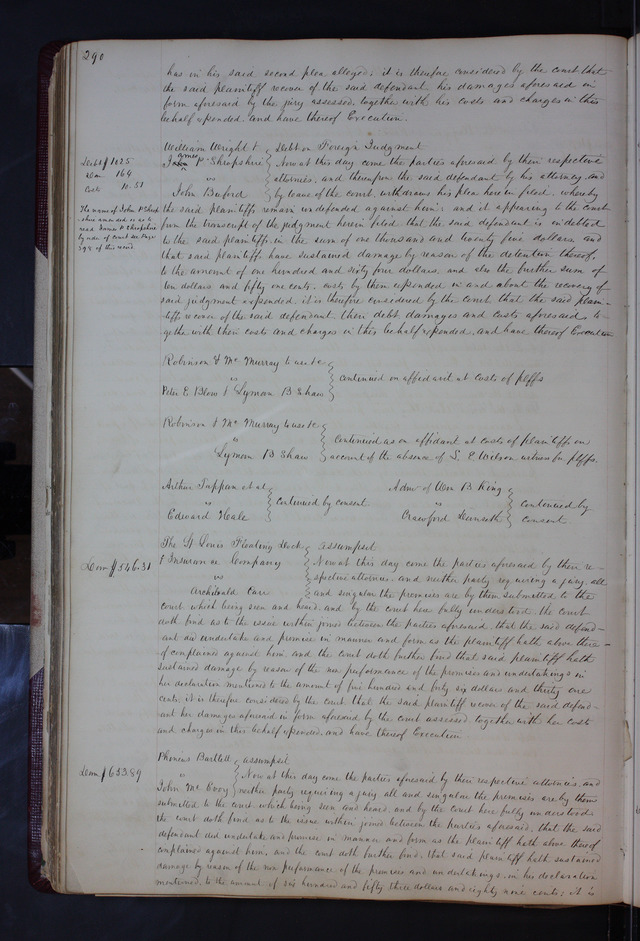 290
has in his said second plea alleged; it is therefore considered by the court that
the said plaintiff recover of the said defendant his damages aforesaid in
form aforesaid by the jury assessed, together with his costs and charges in this
behalf expended, and have thereof Execution.
William Wright &
James P. Shropshire
vs
John Buford
Debt on Foreign Judgment
Debt $1025
Dam 164
Costs 10.51
Now at this day come the parties aforesaid by their respective
attornies, and thereupon the said defendant by his attorney, and
by leave of the court, withdraws his plea herein filed, whereby
The name of John P Shrop
shire amended so as to
read James P Shropshire
by order of court see Page
398 of this record
the said plaintiffs remain undefended against him; and it appearing to the court
from the transcript of the judgment herein filed that the said defendant is indebted
to the said plaintiffs in the sum of one thousand and twenty five dollars and
that said plaintiffs have sustained damage by reason of the detention thereof,
to the amount of one hundred and sixty four dollars, and also the further sum of
ten dollars and fifty one cents, costs by them expended in and about the recovery of
said judgment expended, it is therefore considered by the court that the said plain-
tiffs recover of the said defendant their debt damages and costs aforesaid to-
gether with their costs and charges in this behalf expended, and have thereof Execution
Robinson & McMurray to use &c
vs
Peter E Blow & Lyman B Shaw
continued on affidavit at costs of plffs
Robinson & McMurray to use &c
vs
Lyman B Shaw
Continued as on affidavit at costs of plaintiffs on
account of the absence of S. E. Wilson witness for plffs.
Arthur Tappan et al
vs
Edward Hale
continued by consent
Admr of Wm B. King
vs
Crawford
continued by
consent
The St Louis Floating Dock
& Insurance Company
vs
Archibald Carr
assumpsit
Dam $546.31
Now at this day come the parties aforesaid by their re-
spective attornies, and neither party requiring a jury, all
and singular the premises are by them submitted to the
court, which being seen and heard, and by the court here fully understood, the court
doth find as to the issue within joined between the parties aforesaid, that the said defend-
ant did undertake and promise in manner and form as the plaintiff hath above there-
of complained against him, and the court doth further find that said plaintiff hath
sustained damage by reason of the non performance of the promises and undertakings in
her declaration mentioned to the amount of five hundred and forty six dollars and thirty one
cents, it is therefore considered by the court that the said plaintiff recover of the said defend-
ant her damages aforesaid in form aforesaid by the court assessed, together with her costs
and charges in this behalf expended, and have thereof Execution
Phoneus Bartlett
vs
John McCoy
assumpsit
Dam $653.89
Now at this day come the parties aforesaid by their respective attornies, and
neither party requiring a jury all and singular the premises are by them
submitted to the court which being seen and heard, and by the court here fully understood
the court doth find as to the issue within joined between the parties aforesaid, that the said
defendant did undertake and promise in manner and form as the plaintiff hath above thereof
complained against him, and the court doth further find, that said plaintiff hath sustained
damage by reason of the non performance of the promises and undertakings, in his declaration
mentioned, to the amount of six hundred and fifty three dollars and eighty nine cents; it is